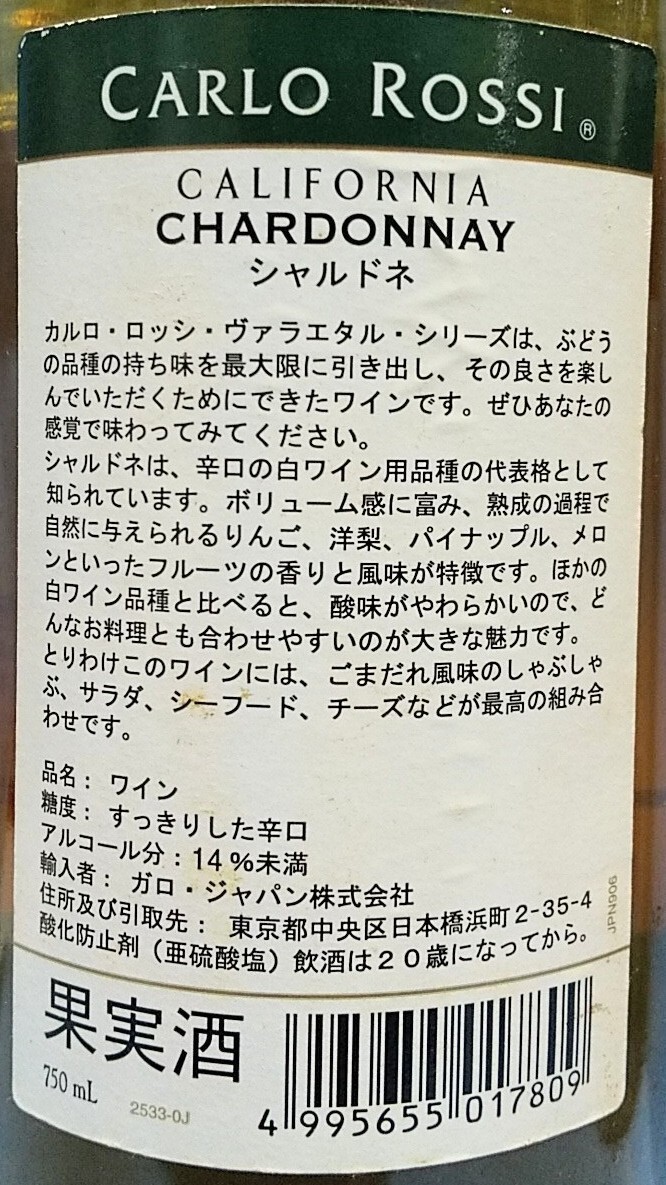 CARLO ROSSI®
CALIFORNIA
CHARDONNAY
シャルドネ
カルロ・ロッシ・ヴァラエタル・シリーズは、ぶどう
の品種の持ち味を最大限に引き出し、その良さを楽し
んでいただくためにできたワインです。ぜひあなたの
感覚で味わってみてください。
シャルドネは、辛口の白ワイン用品種の代表格として
知られています。ボリューム感に富み、熟成の過程で
自然に与えられるりんご、洋梨、パイナップル、メロ
ンといったフルーツの香りと風味が特徴です。ほかの
白ワイン品種と比べると、酸味がやわらかいので、ど
んなお料理とも合わせやすいのが大きな魅力です。
とりわけこのワインには、ごまだれ風味のしゃぶしゃ
ぶ、サラダ、シーフード、チーズなどが最高の組み合
わせです。
品名： ワイン
糖度： すっきりした辛口
アルコール分：14％未満
輸入者： ガロ・ジャパン株式会社
住所及び引取先： 東京都中央区日本橋浜町2-35-4
酸化防止剤（亜硫酸塩）飲酒は２０歳になってから。
JPN906
果実酒
750 mL
2533-0J
4 995655 017809